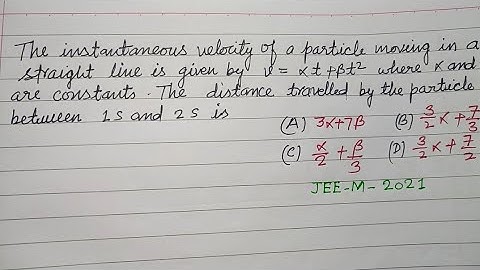 The instantaneous velocity of a particle moving in a
straight line is given by v = αt + βt² where α and
are constants. The distance travelled by the particle
between 1s and 2s is
(A) 3α+7β (B) 3/2 α + 7/3
(C) α/2 + β/3 (D) 3/2 α + 7/2
JEE-M-2021